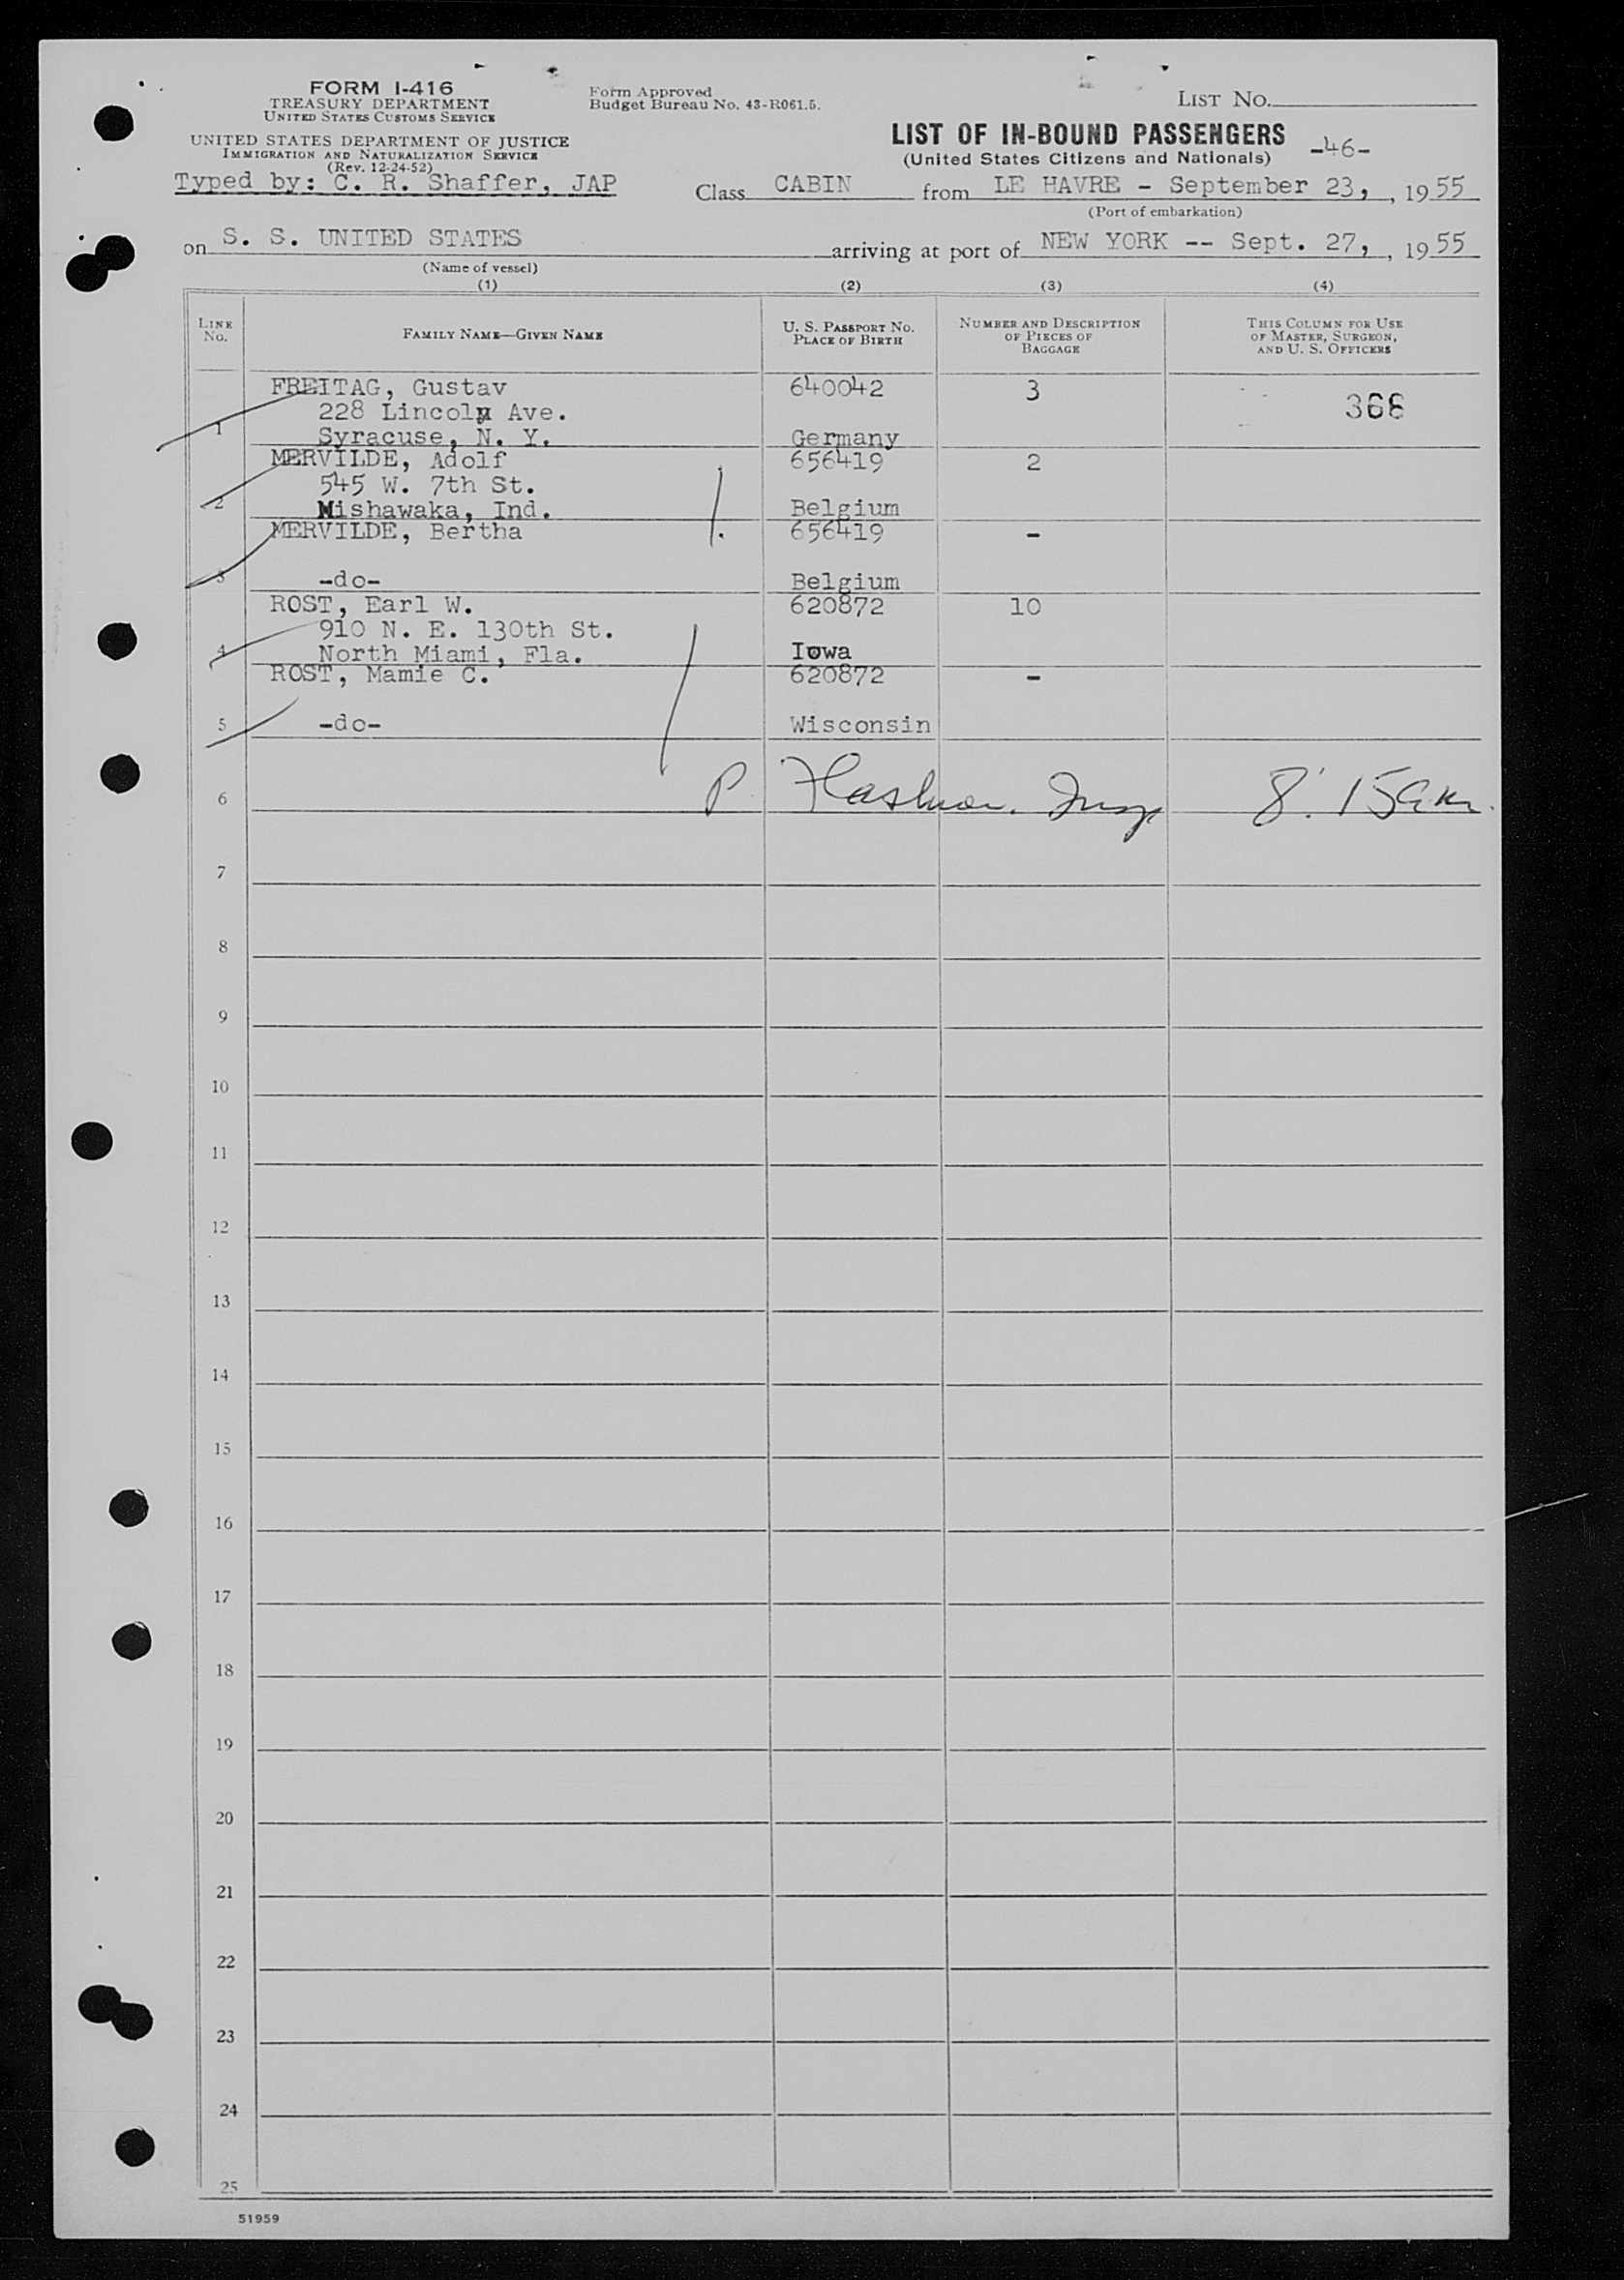 FORM I-416
TREASURY DEPARTMENT
UNITED STATES CUSTOMS SERVICE
UNITED STATES DEPARTMENT OF JUSTICE
IMMIGRATION AND NATURALIZATION SERVICE
(Rev. 12-24-52)
Typed by: C. R. Shaffer, JAP
Form Approved
Budget Bureau No. 43-R061.5.
LIST NO.
LIST OF IN-BOUND PASSENGERS
(United States Citizens and Nationals)
-46-
Class CABIN from LE HAVRE - September 23, , 1955
(Port of embarkation)
on S. S. UNITED STATES arriving at port of NEW YORK -- Sept. 27, , 1955
(Name of vessel)
(1) (2) (3) (4)
LINE NO. FAMILY NAME—GIVEN NAME U. S. PASSPORT NO. PLACE OF BIRTH NUMBER AND DESCRIPTION OF PIECES OF BAGGAGE THIS COLUMN FOR USE OF MASTER, SURGEON, AND U. S. OFFICERS
FREITAG, Gustav 640042 3
228 Lincoln Ave. 366
1 Syracuse, N. Y. Germany
MERVILDE, Adolf 656419 2
545 W. 7th St.
2 Mishawaka, Ind. Belgium
MERVILDE, Bertha 656419 -
3 -do- Belgium
ROST, Earl W. 620872 10
910 N. E. 130th St.
4 North Miami, Fla. Iowa
ROST, Mamie C. 620872 -
5 -do- Wisconsin
6 P. Insp 8:15am.
7
8
9
10
11
12
13
14
15
16
17
18
19
20
21
22
23
24
25
51959